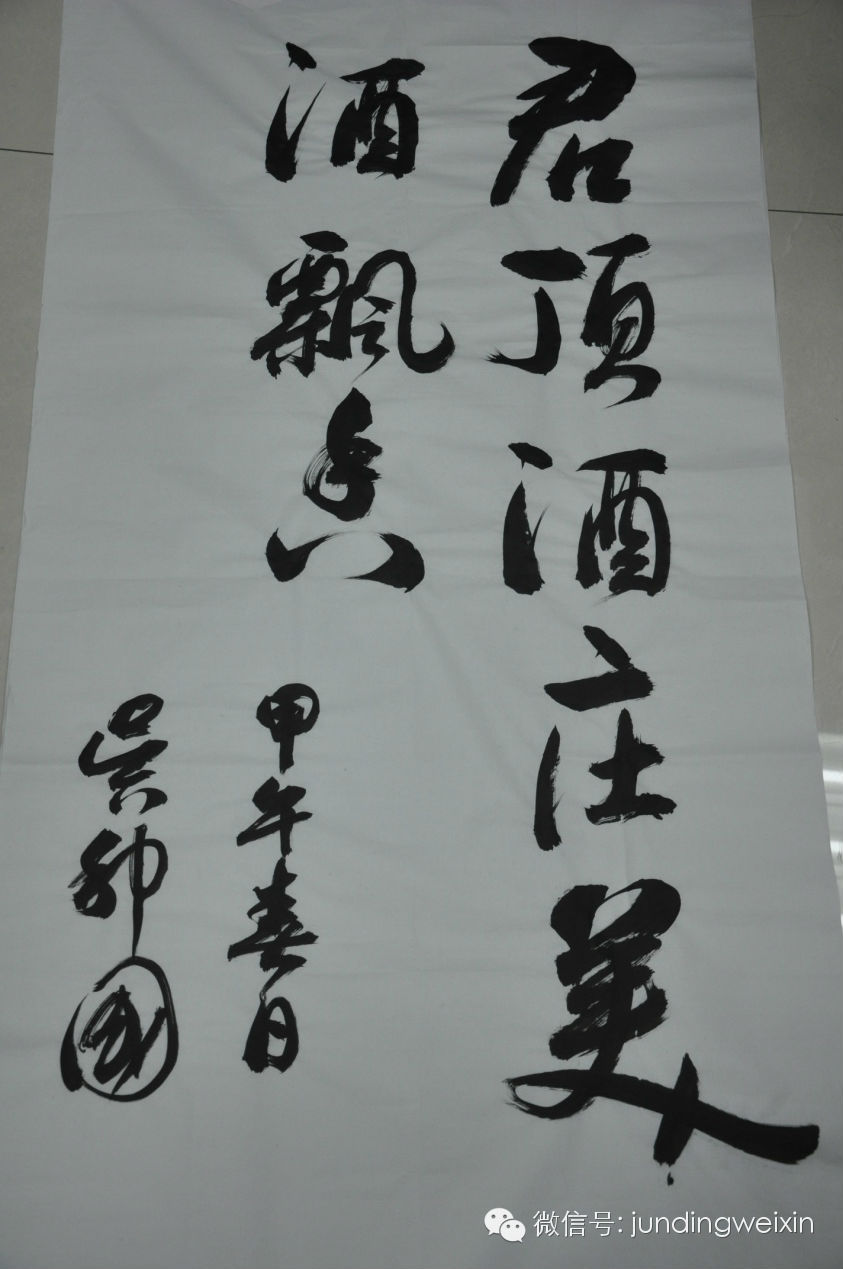 君顶酒庄美
酒飘香
甲午春日
吴仰国
微信号: jundingweixin